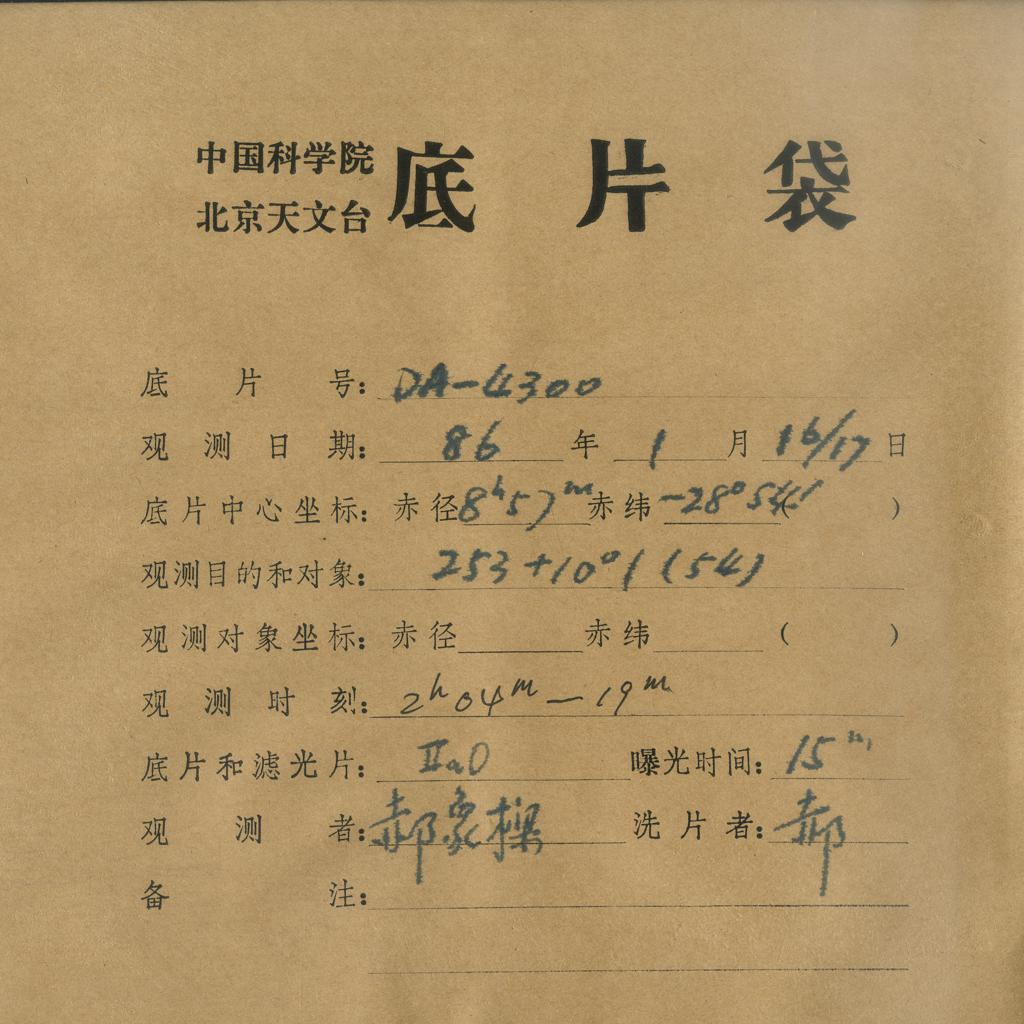 中国科学院
北京天文台
底片袋
底片号: DA-4300
观测日期: 86年1月16/17日
底片中心坐标: 赤径8h57m赤纬-28°54′( )
观测目的和对象: 253+10°1(54)
观测对象坐标: 赤径 赤纬 ( )
观测时刻: 2h04m—19m
底片和滤光片: IIaO 曝光时间: 15m
观测者: 郝象樑 洗片者: 郝
备注: